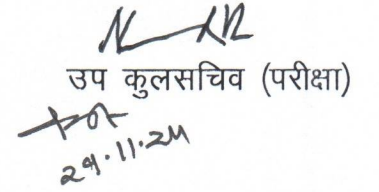 उप कुलसचिव (परीक्षा)
29.11.24